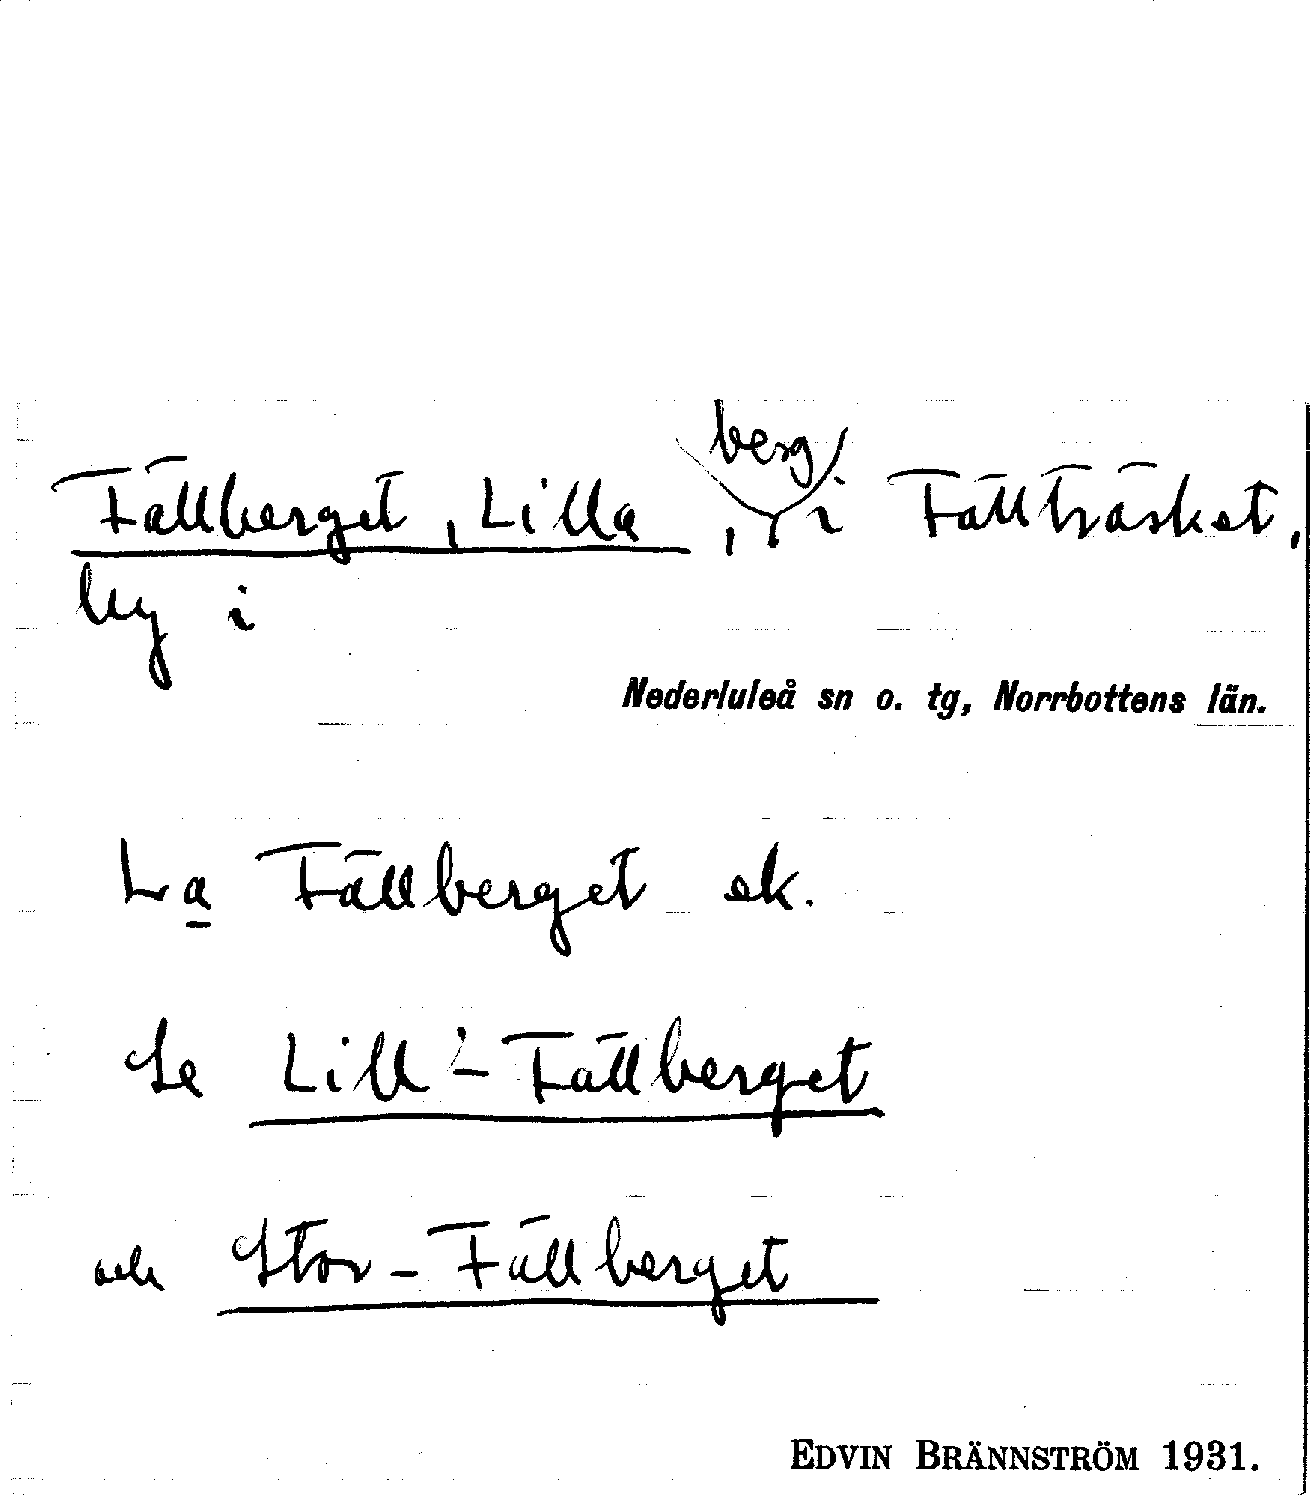 Fällberget, Lilla, berg, i Fällträsket,
by i
Nederluleå sn o. tg, Norrbottens län.
La Fällberget ek.
Se Lill-Fällberget
och Stor-Fällberget
EDVIN BRÄNNSTRÖM 1931.